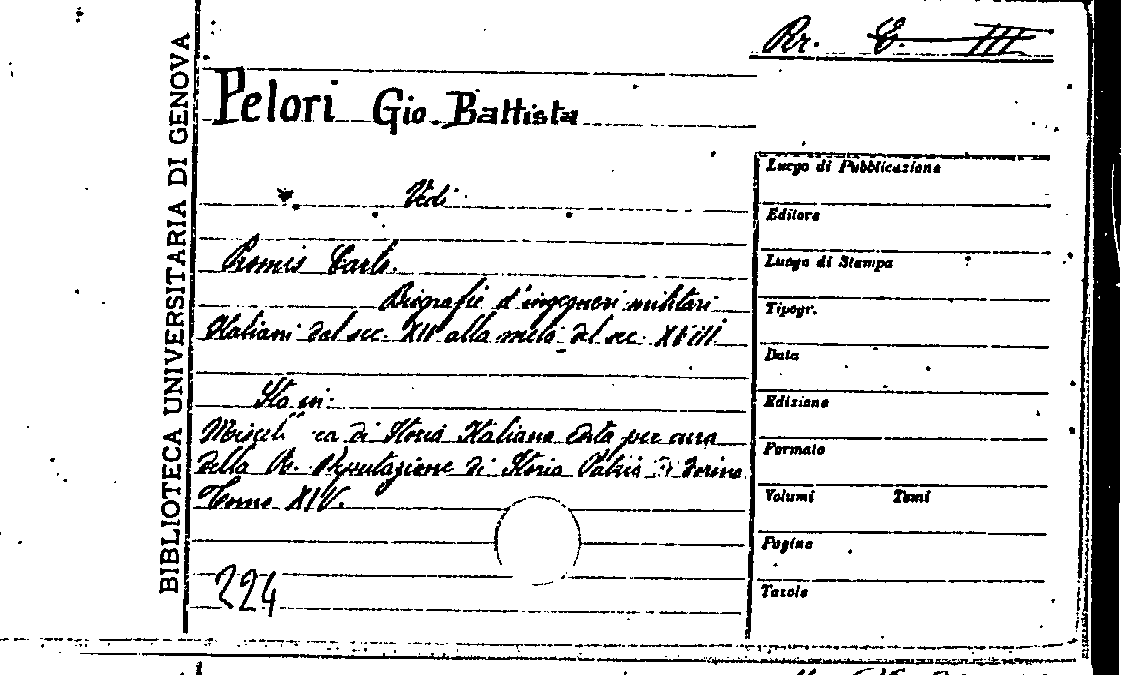 BIBLIOTECA UNIVERSITARIA DI GENOVA
Rr. C. III
Pelori Gio. Battista
Vedi
Promis Carlo.
Biografie d'ingegneri militari
Italiani dal sec. XIV alla metà del sec. XVIII
Sta in:
ea di Storia Italiana edita per cura
della R. Deputazione di Storia Patria di Torino
Tomo XIV.
224
Luogo di Pubblicazione
Editore
Luogo di Stampa
Tipogr.
Data
Edizione
Formato
Volumi Tomi
Pagine
Tavole